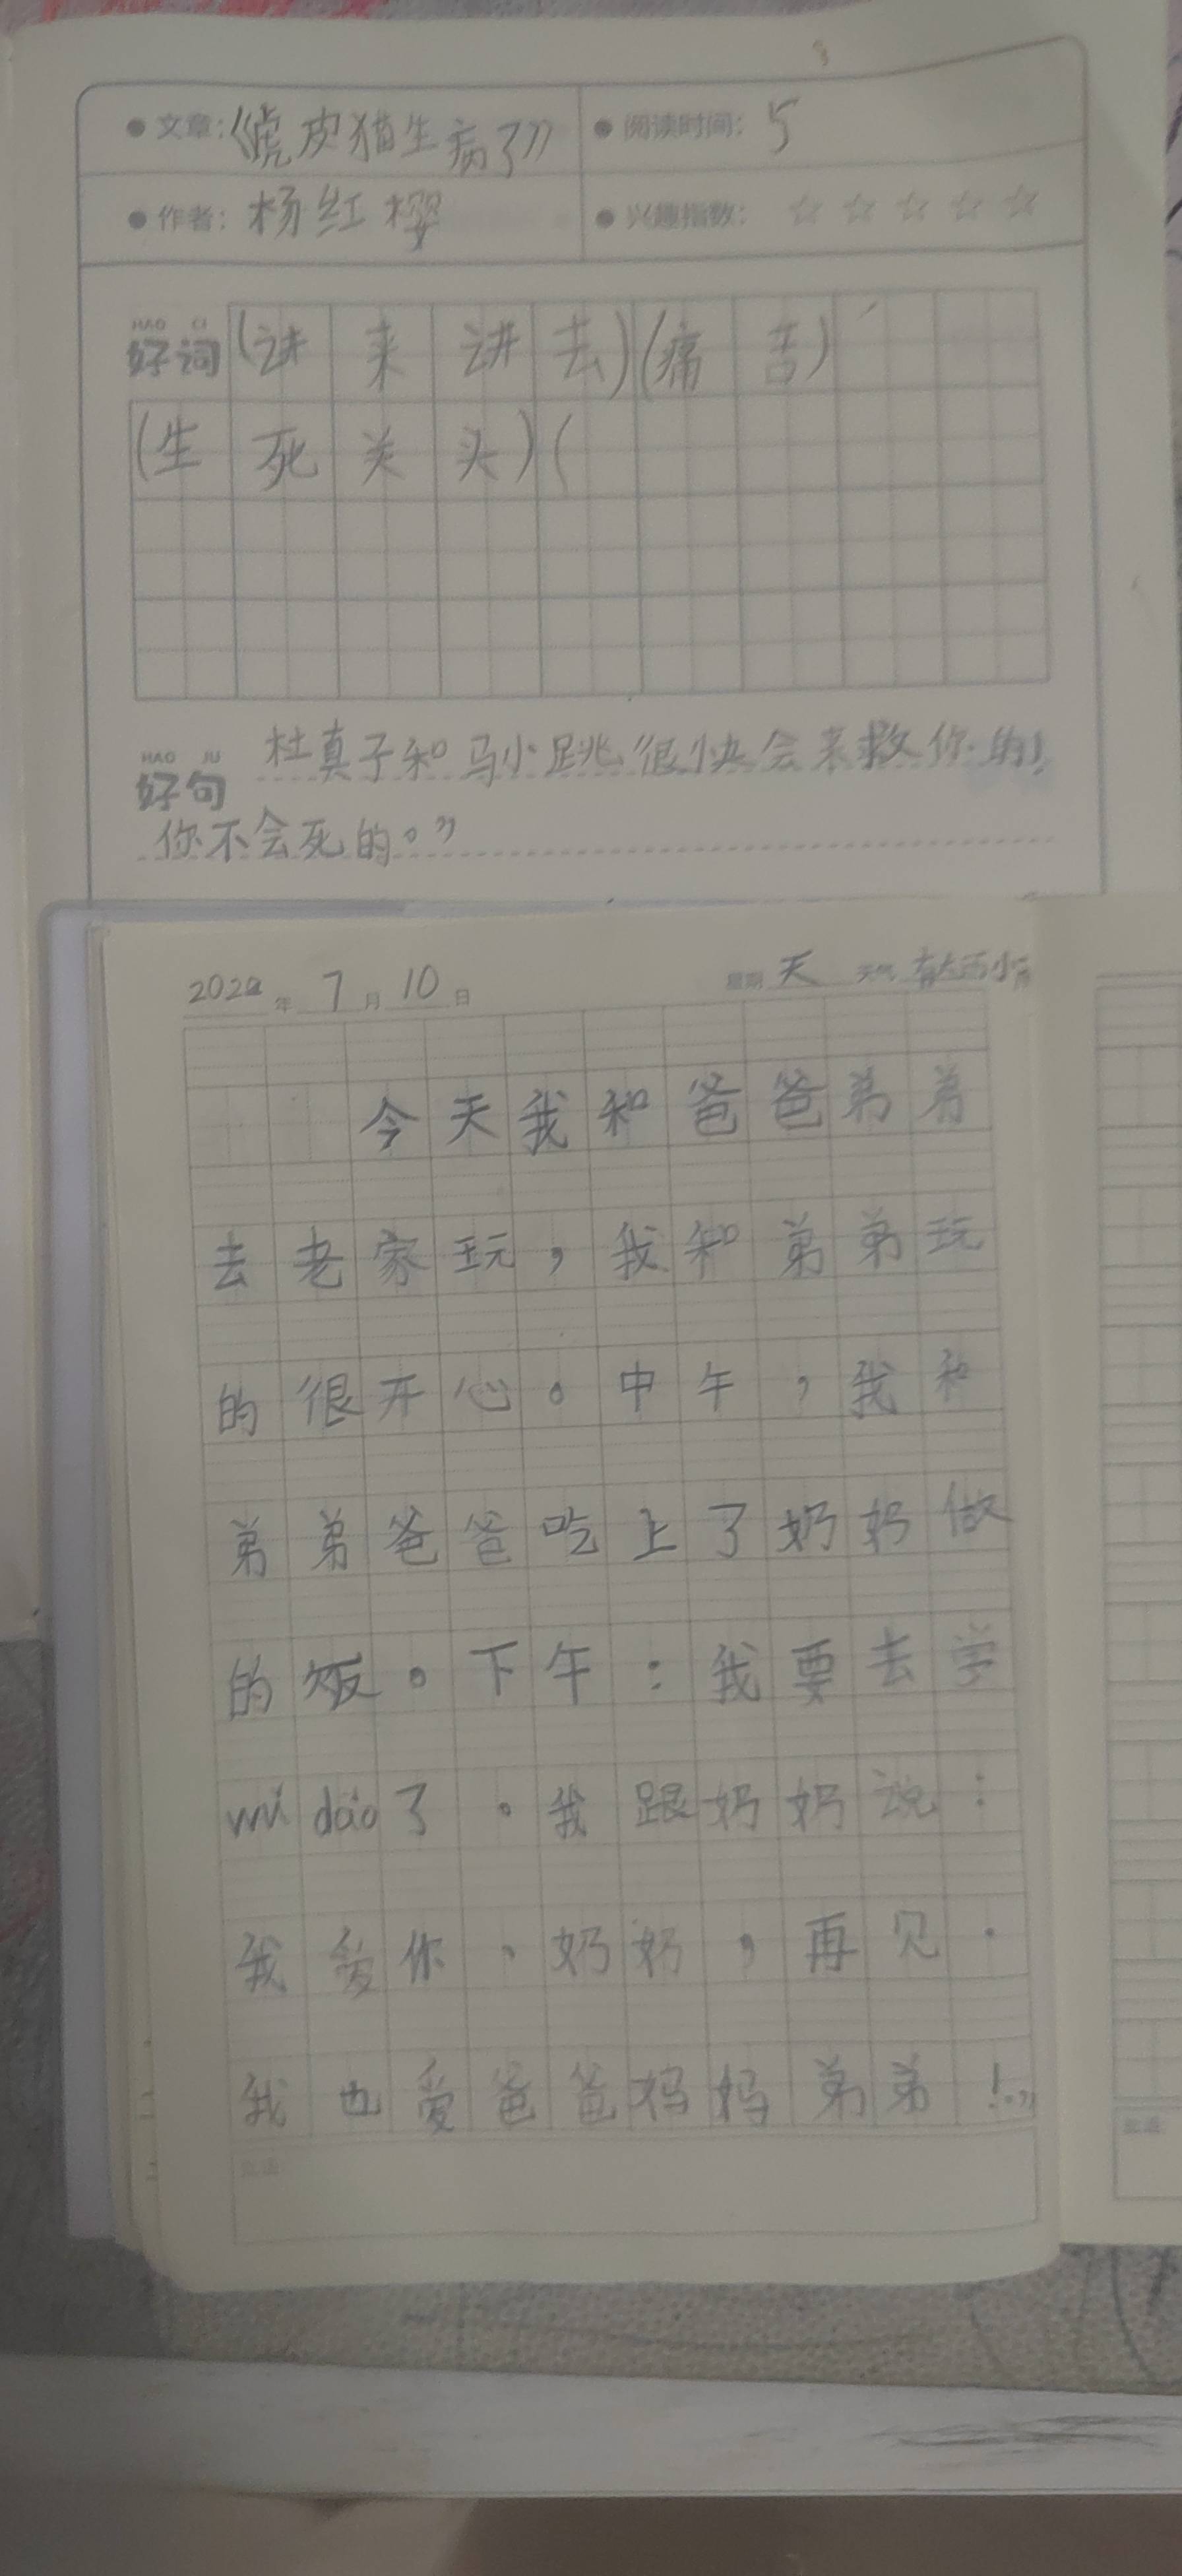 文章:《虎皮猫生病了》 阅读时间: 5
作者: 杨红樱 兴趣指数: ☆☆☆☆☆
HAO CI
好词 (讲来讲去)(痛苦)
(生死关头)(
HAO JU
好句 杜真子和马小跳很快会来救你的!
你不会死的。”
2022年 7月 10日 星期 天 天气
今天我和爸爸弟弟
去老家玩,我和弟弟玩
的很开心。中午,我和
弟弟爸爸吃上了奶奶做
的饭。下午:我要去学
dào了。我跟奶奶说:
我爱你,奶奶,再见.
我也爱爸爸妈妈弟弟!.”